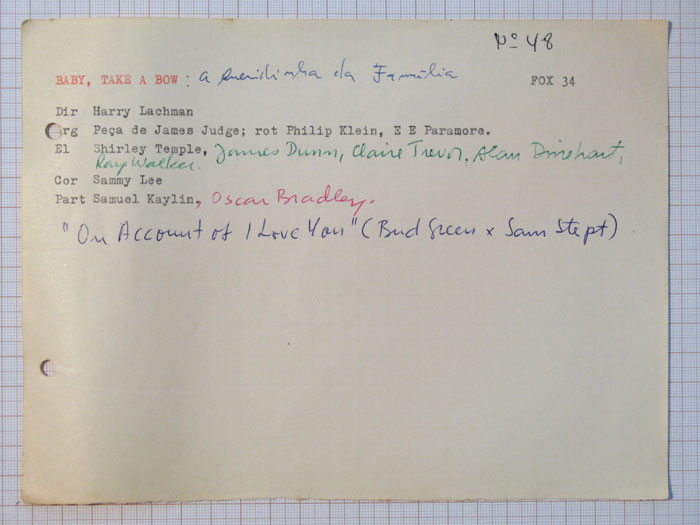 Nº 48
BABY, TAKE A BOW : a queridinha da Família FOX 34
Dir Harry Lachman
rg Peça de James Judge; rot Philip Klein, E E Paramore.
El Shirley Temple, James Dunn, Claire Trevor, Alan Dinehart,
Ray Walker.
Cor Sammy Lee
Part Samuel Kaylin, Oscar Bradley.
"On Account of I Love You" (Bud Green x Sam Stept)